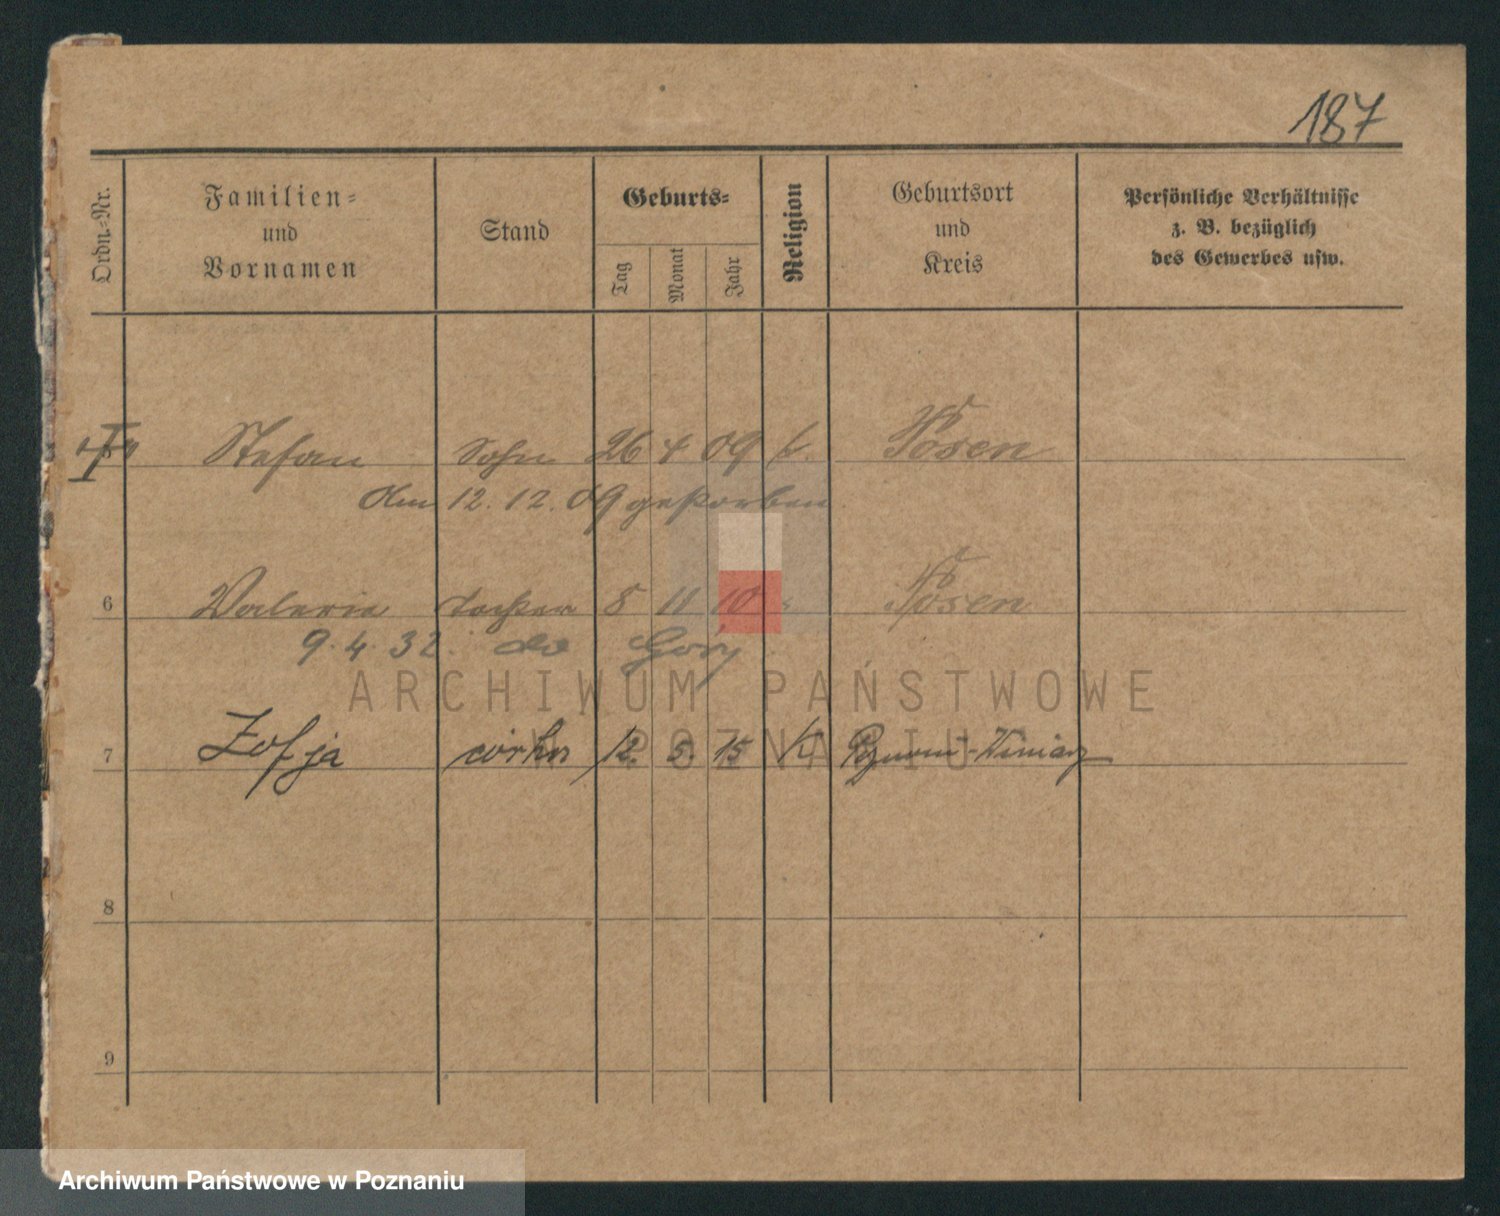 187
Ordn.=Nr.
Familien=
und
Vornamen
Stand
Geburts=
Tag
Monat
Jahr
Religion
Geburtsort
und
Kreis
Persönliche Verhältnisse
z. B. bezüglich
des Gewerbes usw.
Stefan Sohn 26 4 09 k. Posen
Am 12. 12. 09 gestorben
6 Valeria Tochter 8 11 10 Posen
9. 4. 32. do Góry
ARCHIWUM PAŃSTWOWE
W POZNANIU
7 Zofja córka 12. 5. 15 k Poznań-Winiary
8
9
Archiwum Państwowe w Poznaniu